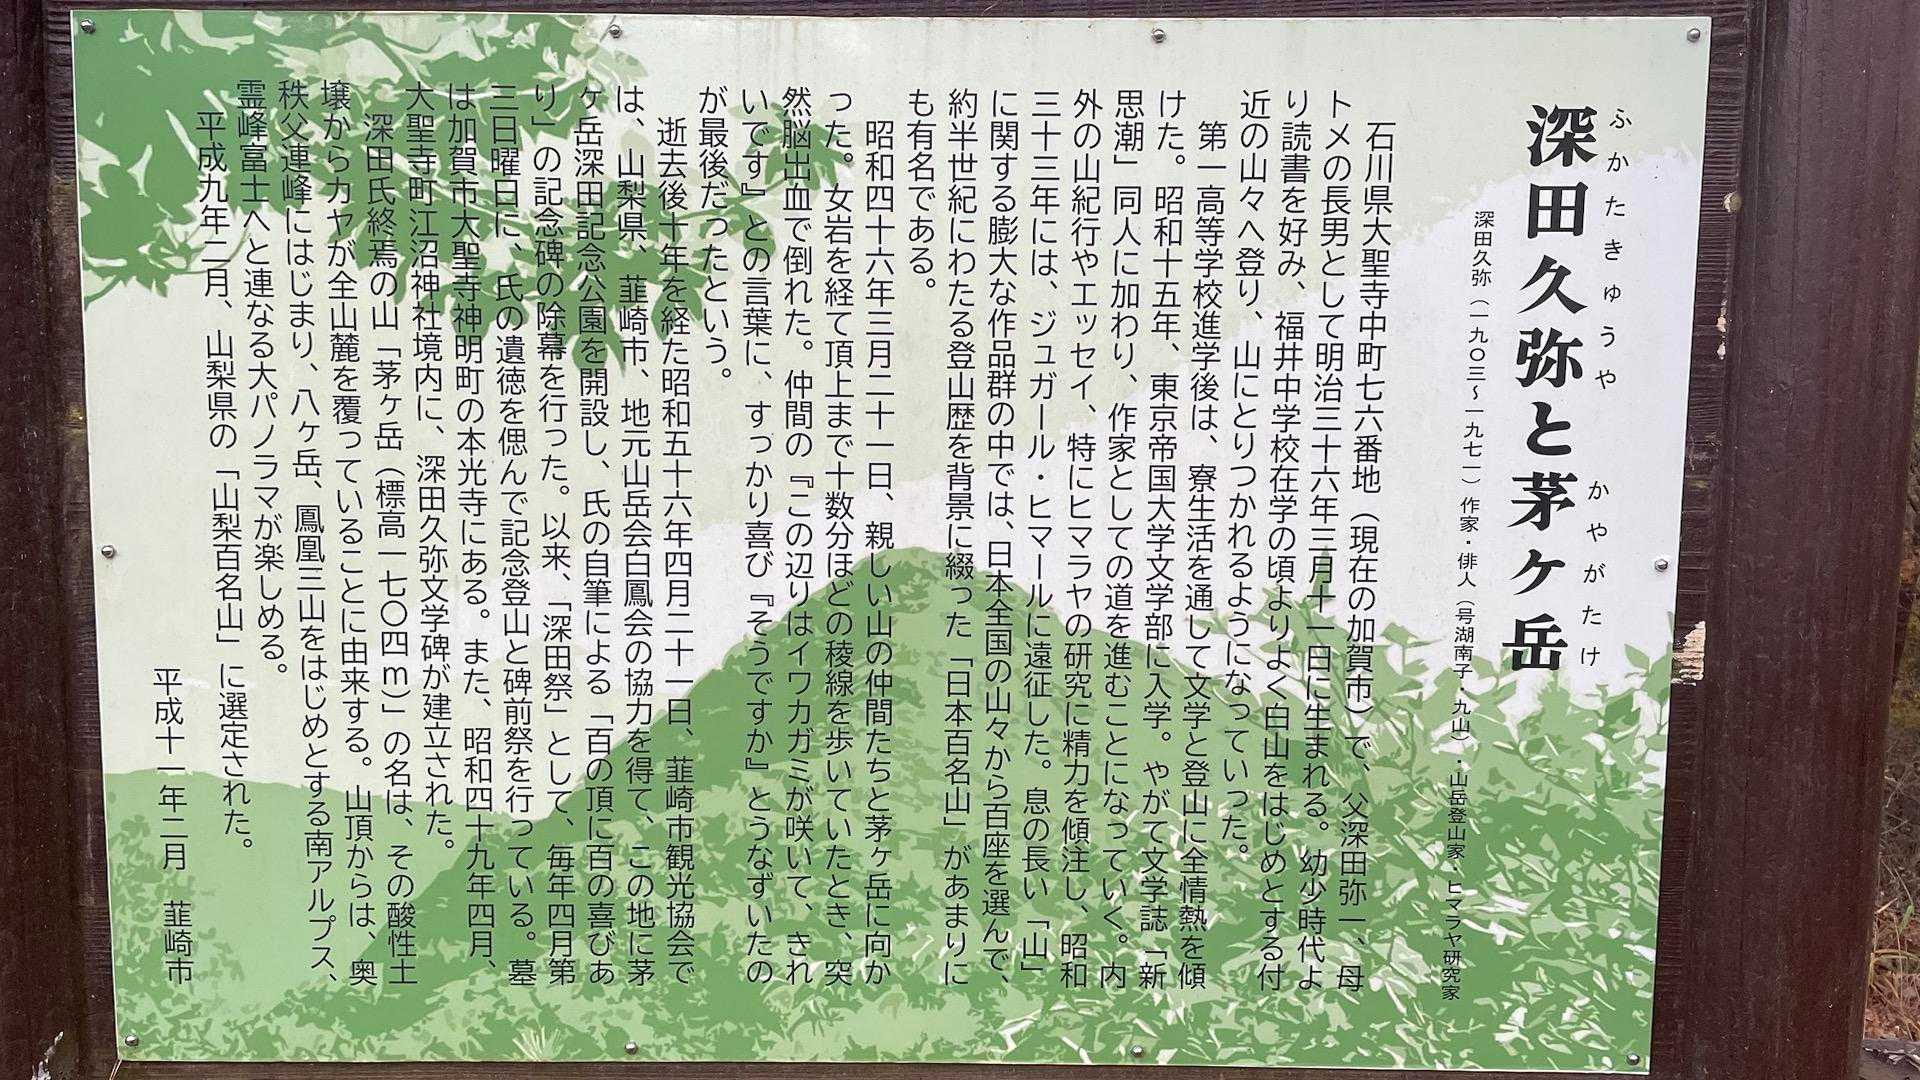 深田久弥と茅ケ岳
ふかたきゅうや　かやがたけ
深田久弥（一九〇三～一九七一）作家・俳人（号湖南子・九山）・山岳登山家・ヒマラヤ研究家
石川県大聖寺中町七六番地（現在の加賀市）で、父深田弥一、母
トメの長男として明治三十六年三月十一日に生まれる。幼少時代よ
り読書を好み、福井中学校在学の頃よりよく白山をはじめとする付
近の山々へ登り、山にとりつかれるようになっていった。
第一高等学校進学後は、寮生活を通して文学と登山に全情熱を傾
けた。昭和十五年、東京帝国大学文学部に入学。やがて文学誌「新
思潮」同人に加わり、作家としての道を進むことになっていく。内
外の山紀行やエッセイ、特にヒマラヤの研究に精力を傾注し、昭和
三十三年には、ジュガール・ヒマールに遠征した。息の長い「山」
に関する膨大な作品群の中では、日本全国の山々から百座を選んで、
約半世紀にわたる登山歴を背景に綴った「日本百名山」があまりに
も有名である。
昭和四十六年三月二十一日、親しい山の仲間たちと茅ヶ岳に向か
った。女岩を経て頂上まで十数分ほどの稜線を歩いていたとき、突
然脳出血で倒れた。仲間の『この辺りはイワカガミが咲いて、きれ
いです』との言葉に、すっかり喜び『そうですか』とうなずいたの
が最後だったという。
逝去後十年を経た昭和五十六年四月二十一日、韮崎市観光協会で
は、山梨県、韮崎市、地元山岳会白鳳会の協力を得て、この地に茅
ヶ岳深田記念公園を開設し、氏の自筆による「百の頂に百の喜びあ
り」の記念碑の除幕を行った。以来、「深田祭」として、毎年四月第
三日曜日に、氏の遺徳を偲んで記念登山と碑前祭を行っている。墓
は加賀市大聖寺神明町の本光寺にある。また、昭和四十九年四月、
大聖寺町江沼神社境内に、深田久弥文学碑が建立された。
深田氏終焉の山「茅ヶ岳（標高一七〇四ｍ）」の名は、その酸性土
壌からカヤが全山麓を覆っていることに由来する。山頂からは、奥
秩父連峰にはじまり、八ヶ岳、鳳凰三山をはじめとする南アルプス、
霊峰富士へと連なる大パノラマが楽しめる。
平成九年二月、山梨県の「山梨百名山」に選定された。
平成十一年二月　韮崎市